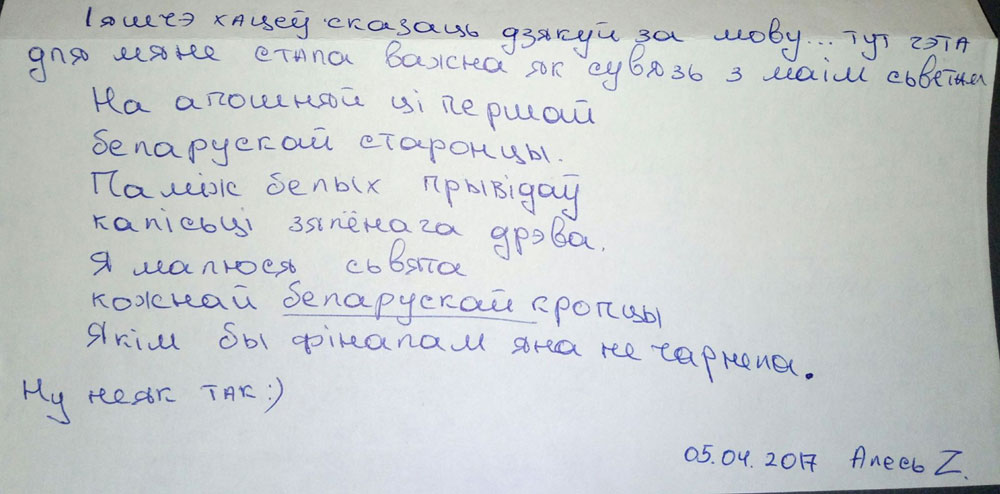 І яшчэ хацеў сказаць дзякуй за мову... тут гэта
для мяне стала важна як сувязь з маім сьветам
На апошняй ці першай
беларускай старонцы.
Паміж белых прывідаў
калісьці зялёнага дрэва.
Я малюся сьвята
кожнай беларускай кропцы
Якім бы фіналам яна не чарнела.
Ну неяк так :)
05.04.2017 Алесь Z.